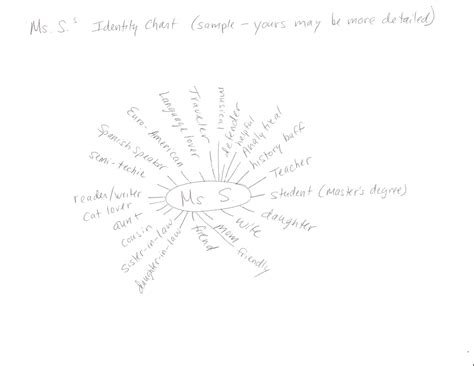 Ms. S.'s Identity Chart (sample - yours may be more detailed)
musical
defender
helpful
Analytical
history buff
Teacher
student (Master's degree)
daughter
wife
friendly
mom
friend
daughter-in-law
sister-in-law
cousin
aunt
Cat lover
reader/writer
semi-techie
Spanish Speaker
Euro-American
Language lover
Traveler
Ms S